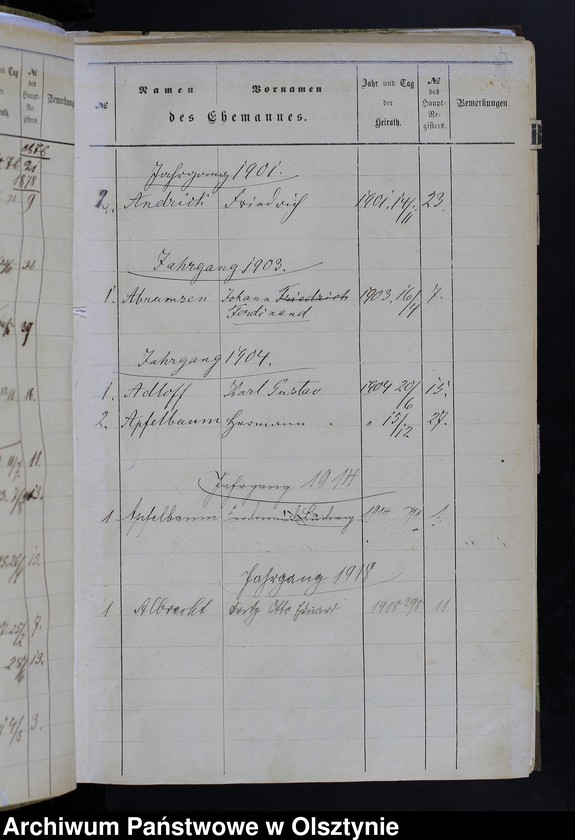 3
№
Namen
Vornamen
des Ehemannes.
Jahr und Tag
der
Heirath.
№
des
Haupt-
Re-
gisters.
Bemerkungen
Jahrgang 1901.
2. Andrich Friedrich 1901. 14/11 23.
Jahrgang 1903.
1. Abramzen Johann Friedrich 1903. 16/4 7.
Ferdinand
Jahrgang 1904.
1. Adloff Karl Gustav 1904 20/6 15.
2. Apfelbaum Hermann " 15/12 27.
Jahrgang 1914
1 Apfelbaum Ferdinand Ludwig 1914 1.
Jahrgang 1918
1 Albrecht Fritz Otto Eduard 1918 11
und Tag
№
des
Haupt-
Re-
gisters.
Bemerkung
1876
21
1878
9
11.
13.
7.
13.
3.
Archiwum Państwowe w Olsztynie